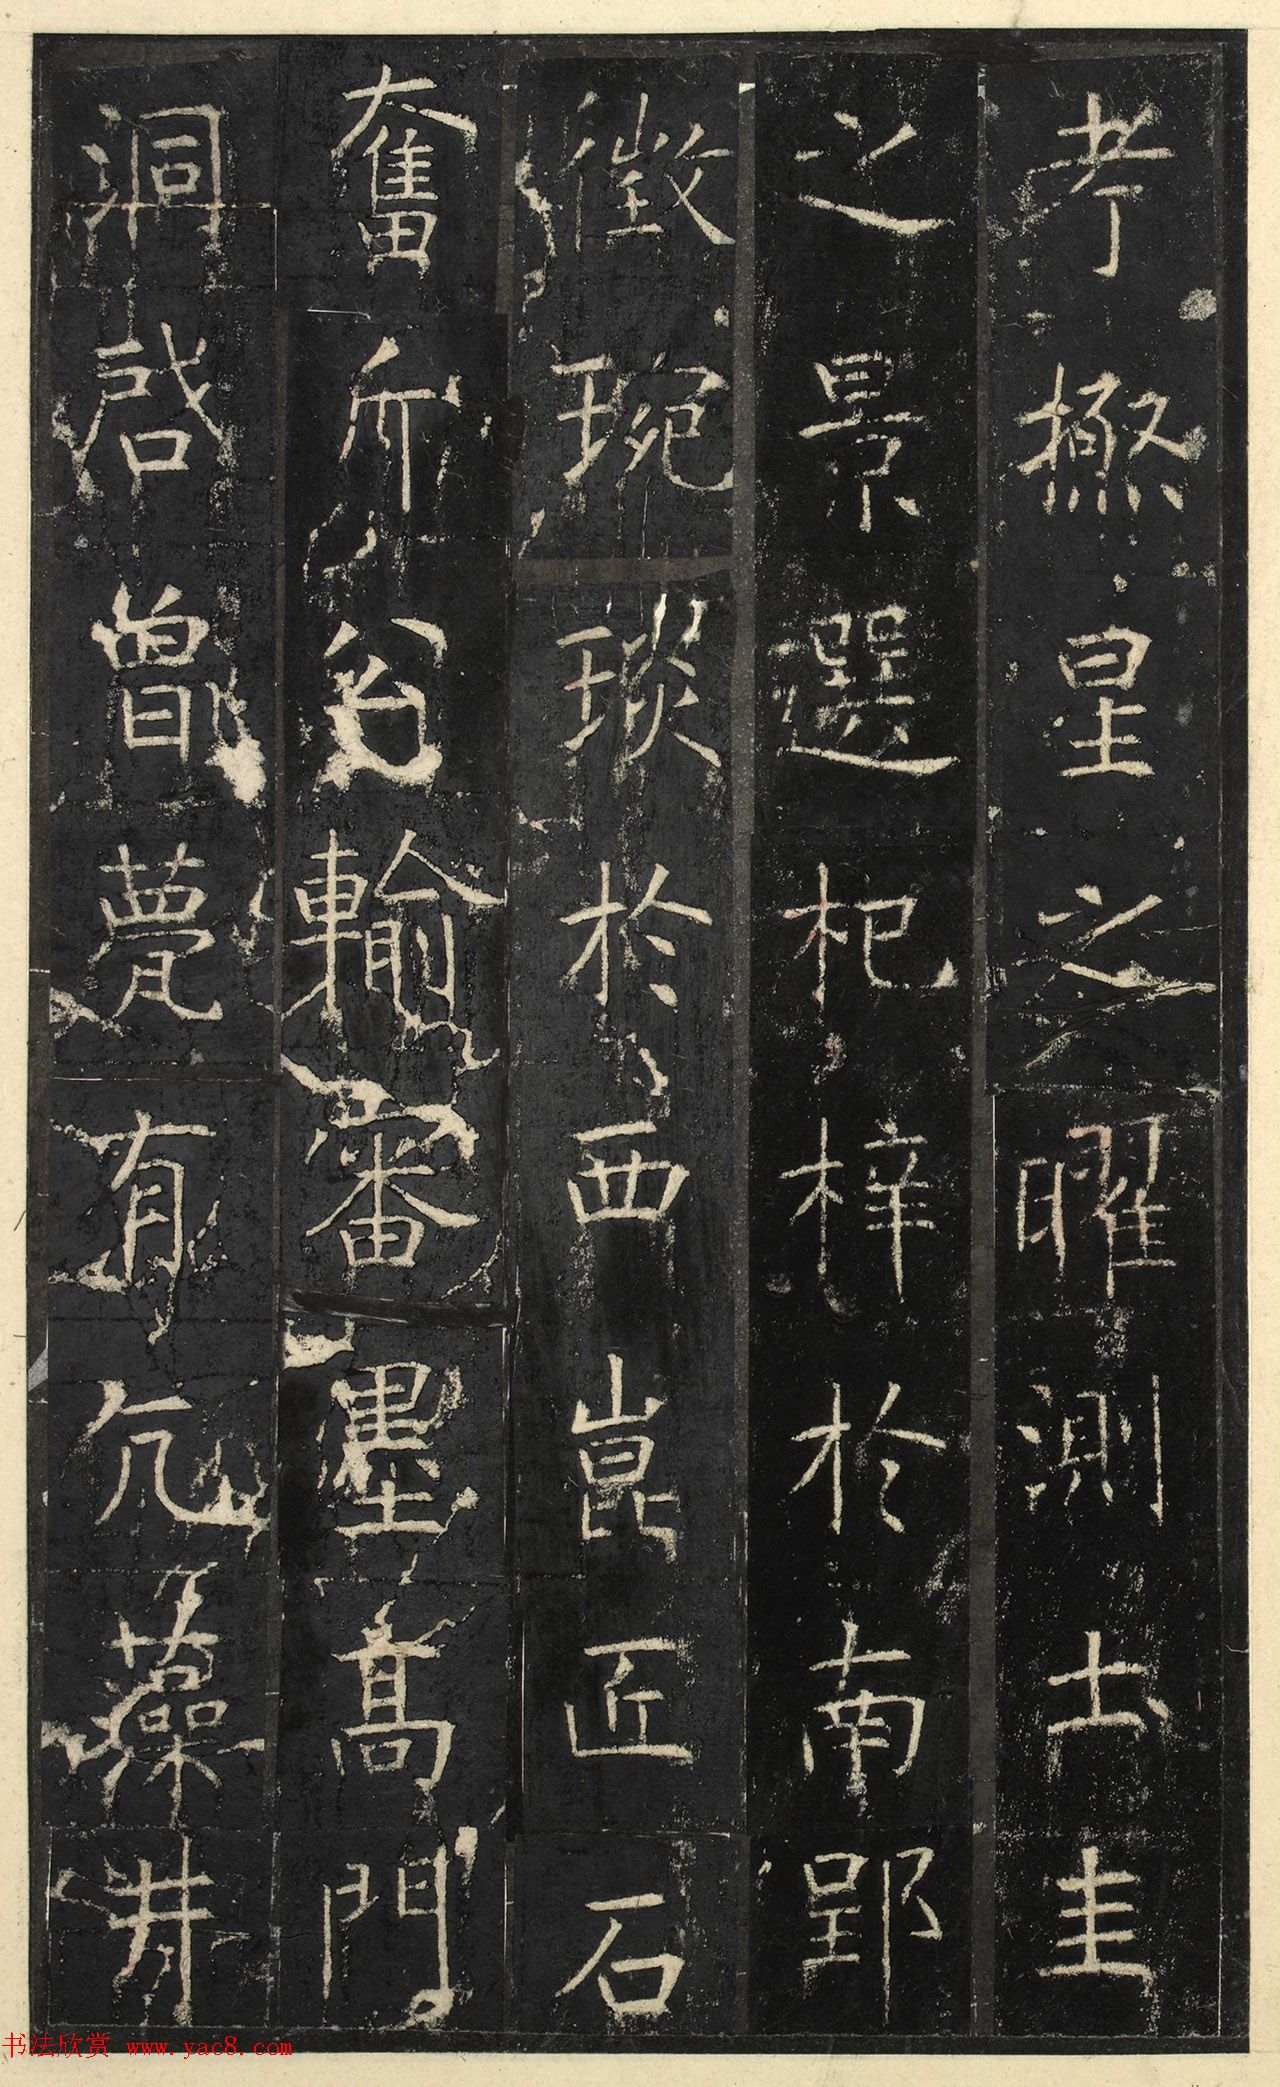 考極星之曜測土圭
之景選杞梓於南郢
徵琬琰於西崑匠石
奮斤公輸審墨高門
洞啓曾甍有亢藻井
书法欣赏 www.yac8.com